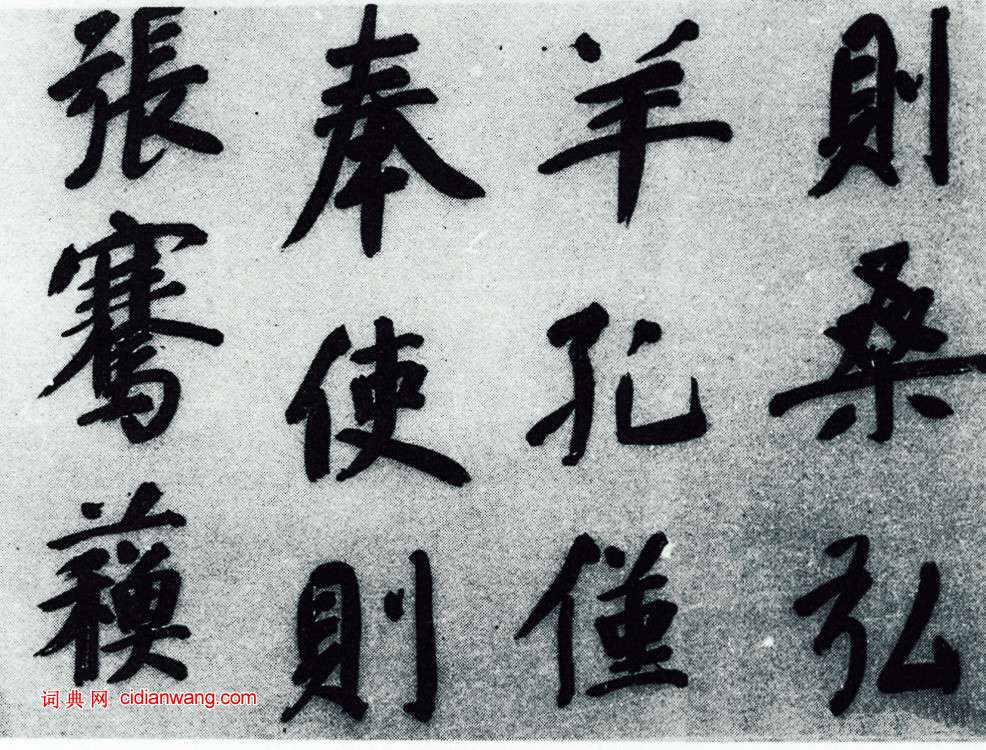 則桑弘
羊孔僅
奉使則
張騫蘇
词典网 cidianwang.com